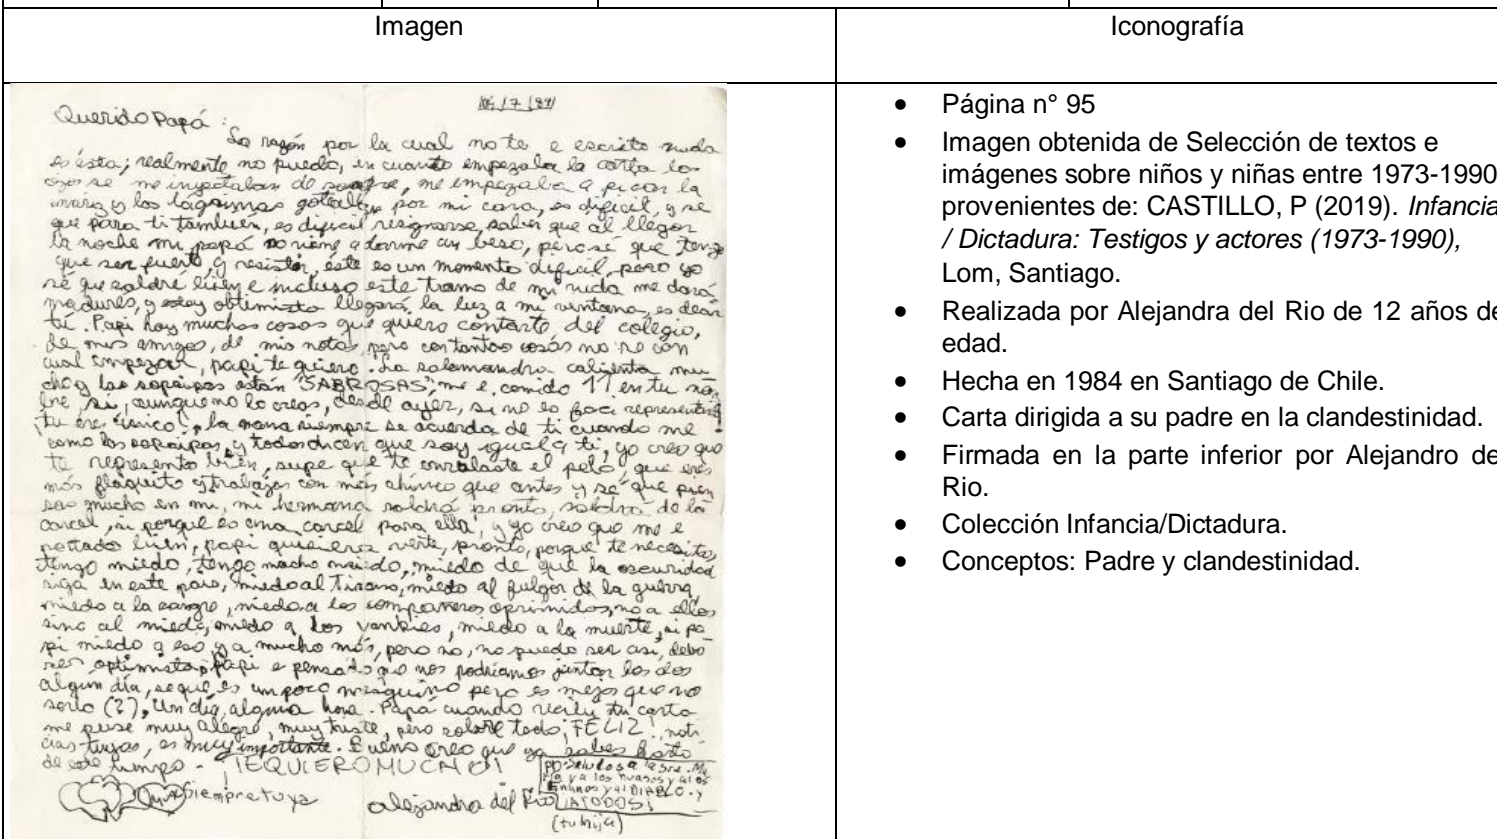 Imagen
Iconografía
16/7/84
Querido Papá:
La razón por la cual no te e escrito nada
es ésta; realmente no puedo, en cuanto empezaba la carta los
ojos se me inyectaban de sangre, me empezaba a picar la
nariz y las lágrimas por mi cara, es dificil, y se
que para ti también, es dificil resignarse, saber que al llegar
la noche mi papá no viene a darme un beso, pero sé que tengo
que ser fuerte, y resistir, éste es un momento dificil, pero yo
sé que saldré bien e incluso este tramo de mi vida me dará
madurés, y estoy obtimista llegará la luz a mi ventana, es decir
tú. Papi hay muchas cosas que quiero contarte, del colegio,
de mis amigos, de mis notas, pero con tantas cosas no se con
cual empezar, papi te quiero. La salamandra calienta mu
cho y las sopaipas están "SABROSAS", me e comido 11 en tu nom
bre, si, aunque no lo creas, desde ayer, si no es facil representarte
¡tu eres único!, la mana siempre se acuerda de ti cuando me
como las sopaipas, y todos dicen que soy igual a ti, yo creo que
te represento bien, supe que te enrulaste el pelo, que eres
más flaquito y trabajas con más ahinco que antes y sé que pien
sas mucho en mi, mi hermana saldrá pronto, saldrá de la
carcel, si porque es una carcel para ella, y yo creo que me e
portado bien, papi quisiera verte, pronto, porque te necesito,
tengo miedo, tengo mucho miedo, miedo de que la oscuridad
siga en este pais, miedo al Tirano, miedo al fulgor de la guerra,
miedo a la sangre, miedo a los compañeros oprimidos, no a ellos
sino al miedo, miedo a los yankies, miedo a la muerte, si pa
pi miedo a eso y a mucho más, pero no, no puedo ser así, debo
ser optimista, papi e pensado que nos podriamos juntar los dos
algún día, se que es un poco mesquino pero es mejor que no
serlo (?), Un día, alguna hora. Papá cuando recibi tu carta
me puse muy alegre, muy triste, pero sobre todo ¡FELIZ!, noti
cias tuyas, es muy importante. Bueno creo que ya sabes harto
de este tiempo - ¡TE QUIERO MUCHO!
Siempre tuya
alejandra del Río
PD: Saludos a la sra. Ma
ría y a los y a los
enanos y al DIABLO. y
¡A TODOS!
(tu hija)
• Página n° 95
• Imagen obtenida de Selección de textos e
imágenes sobre niños y niñas entre 1973-1990
provenientes de: CASTILLO, P (2019). Infancia
/ Dictadura: Testigos y actores (1973-1990),
Lom, Santiago.
• Realizada por Alejandra del Rio de 12 años de
edad.
• Hecha en 1984 en Santiago de Chile.
• Carta dirigida a su padre en la clandestinidad.
• Firmada en la parte inferior por Alejandro de
Rio.
• Colección Infancia/Dictadura.
• Conceptos: Padre y clandestinidad.